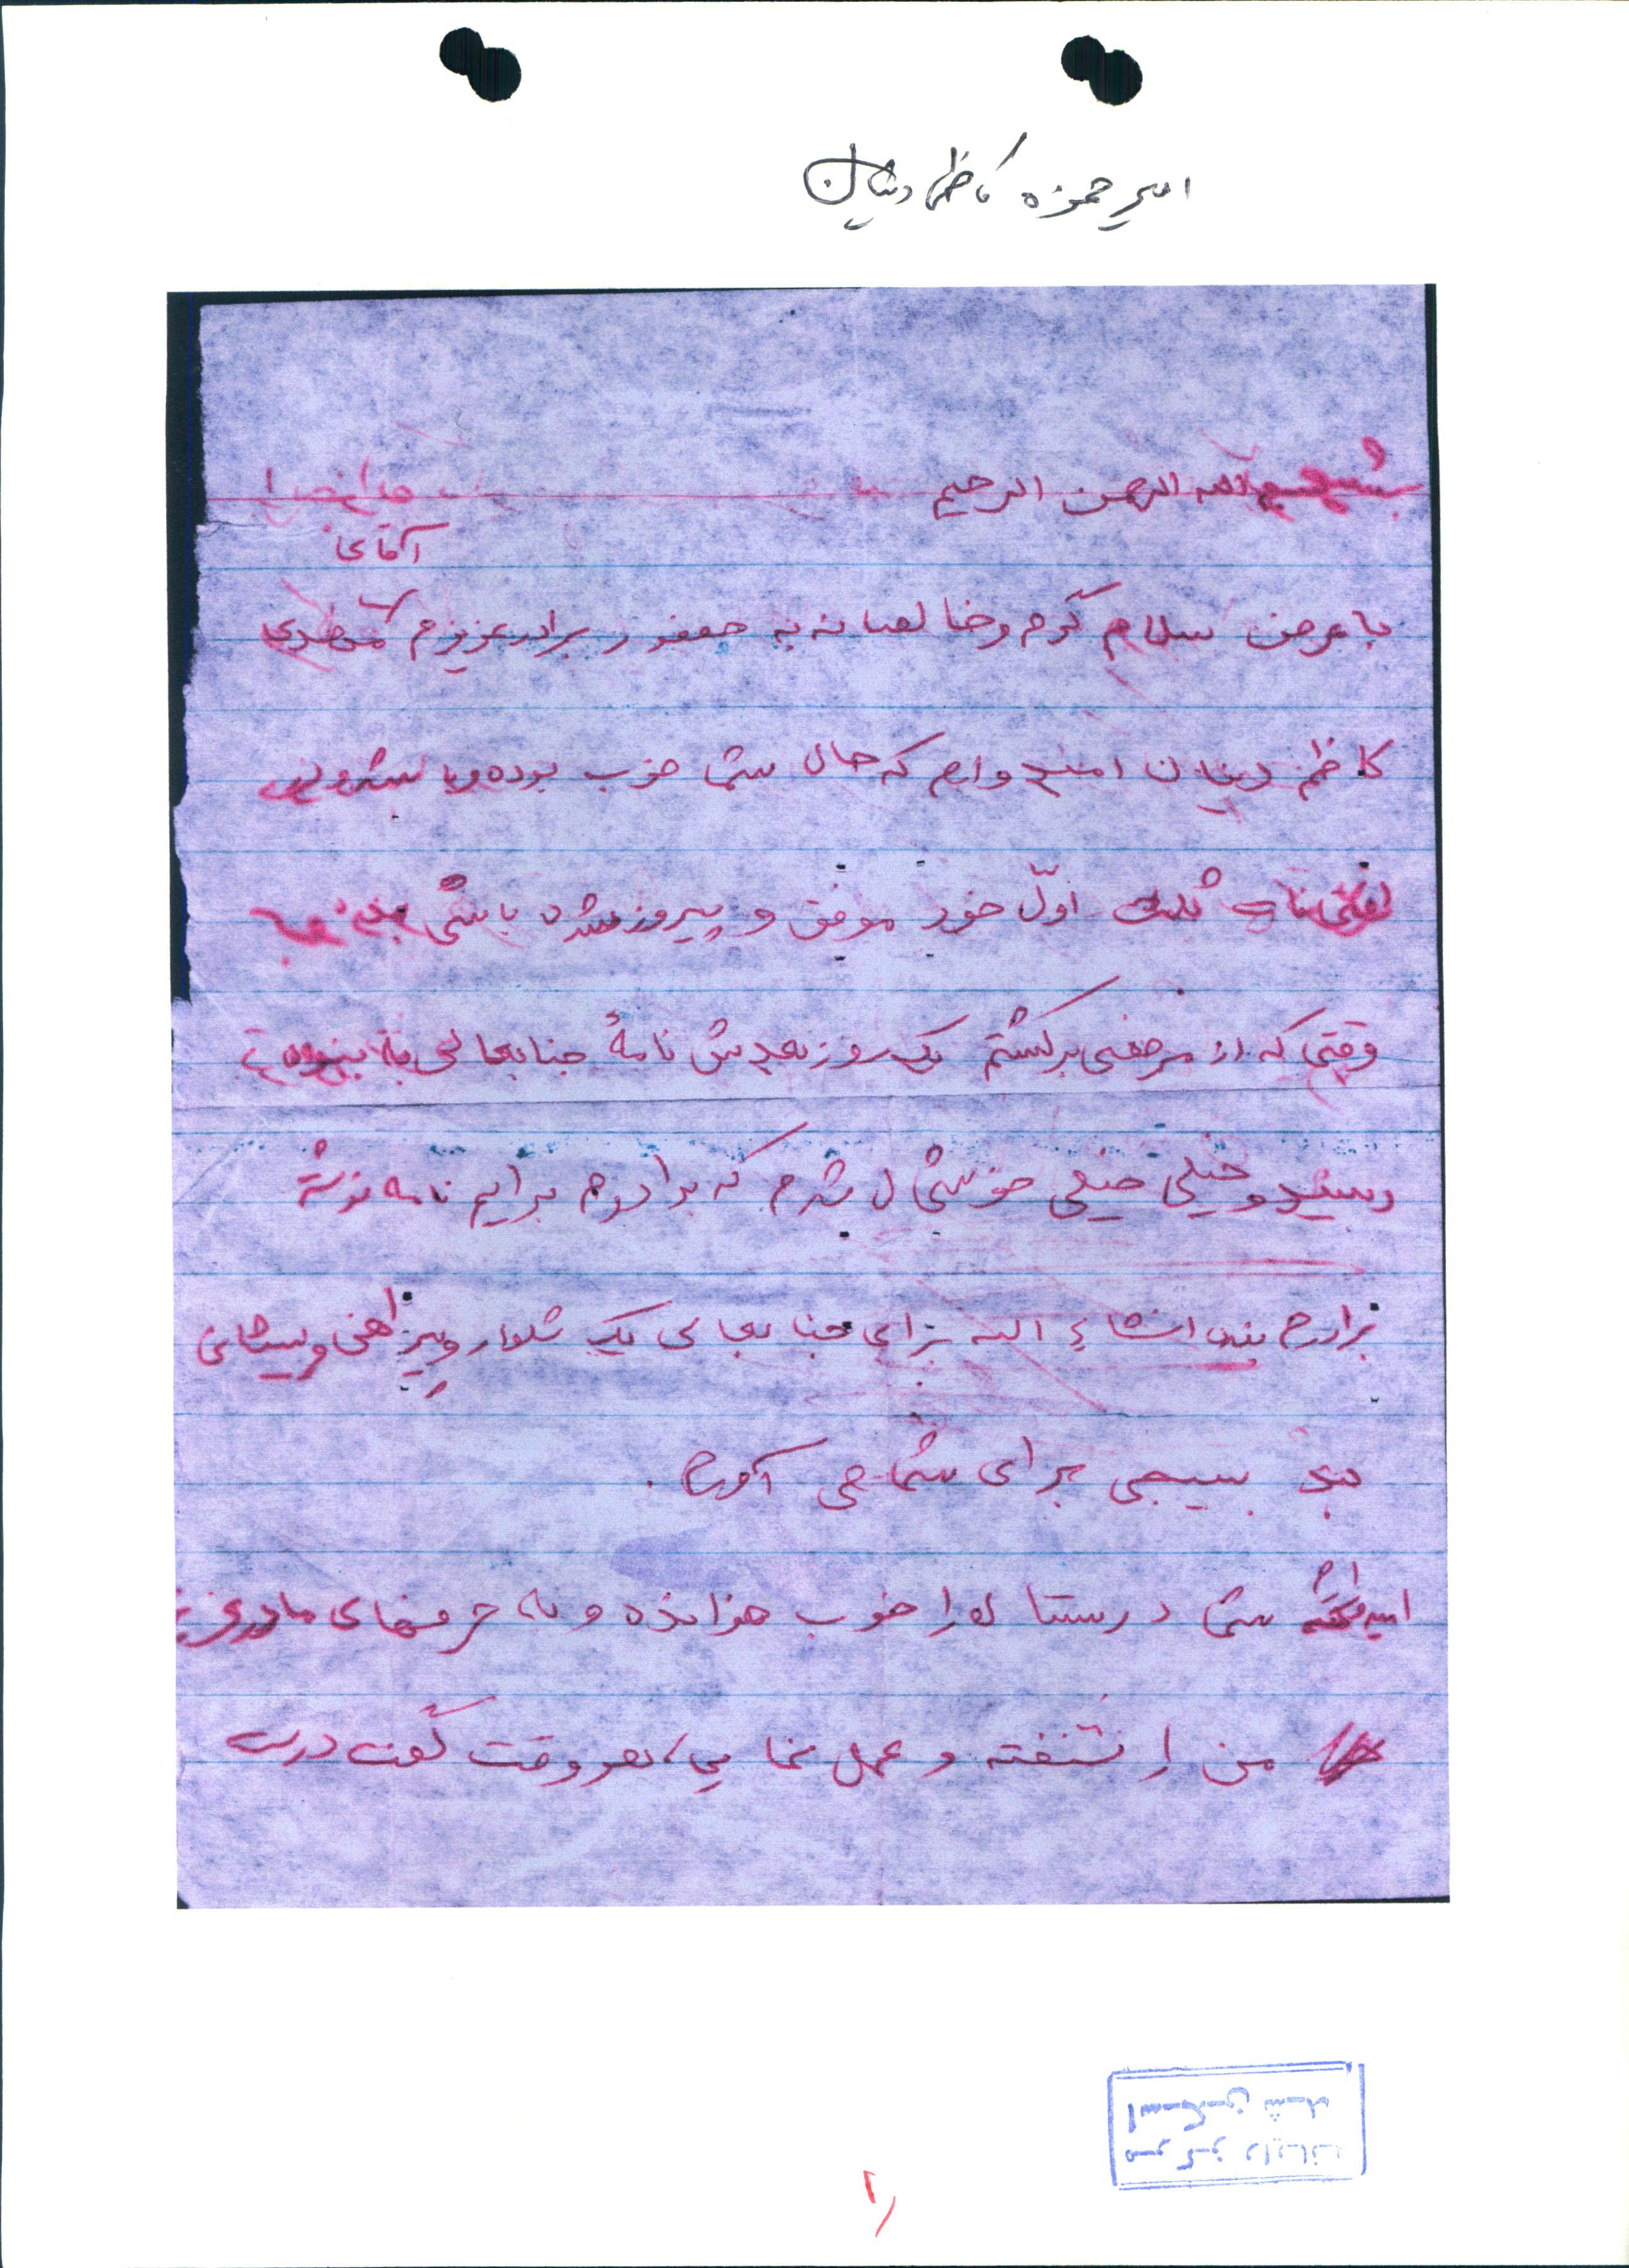 امیر حمزه کاظم دینان
بسم الله الرحمن الرحیم
آقای
با عرض سلام گرم و خالصانه به حضور برادر عزیزم مهدی
کاظم دینان امیدوارم که حال شما خوب بوده و با
ثلث اول خود موفق و پیروز شده باشی
وقتی که از مرخصی برگشتم یک روز بعدش نامهٔ جنابعالی به بنده
رسید و خیلی خیلی خوشحال شدم که برادرم برایم نامه نوشته
برادرم بنده انشاء الله برای جنابعالی یک شلوار و پیراهنی و پیشانی
بند بسیجی برای شما می آورم.
امید است شما درستان را خوب خوانده و به حرفهای مادر عزیز
من را شنفته و عمل نمایی، هر وقت گفت درست
مرکز دایرة
اسکن شد
۱